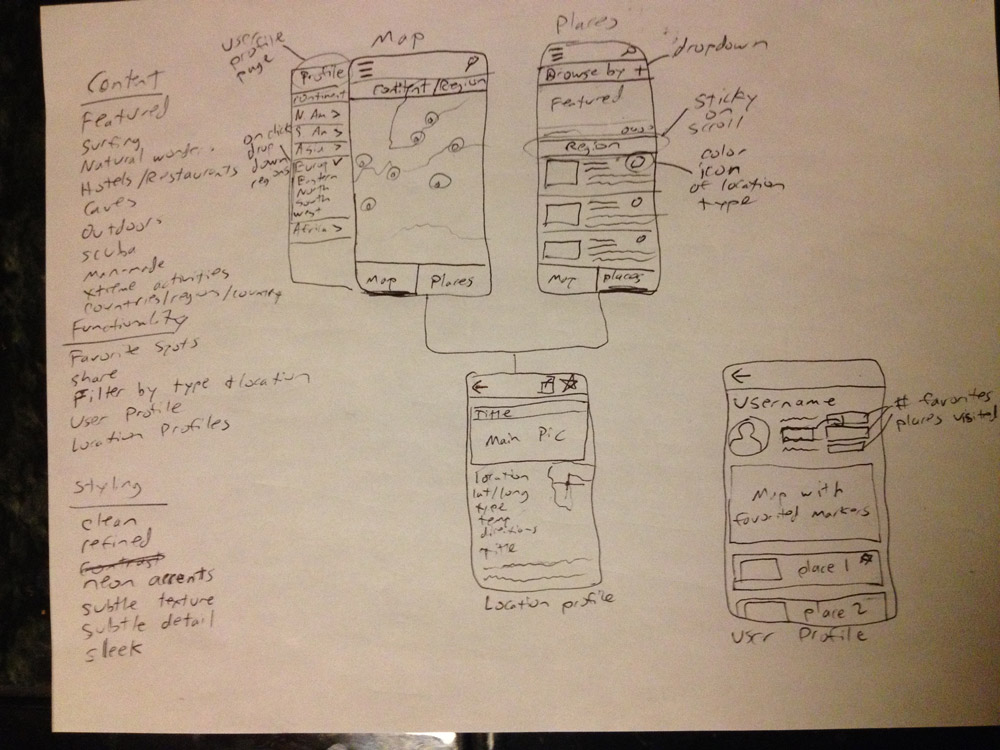 Content
Featured
Surfing
Natural wonders
Hotels/Restaurants
Caves
Outdoors
scuba
man-made
xtreme activities
Countries/region/country
Functionality
Favorite Spots
share
Filter by type + location
User Profile
Location Profiles
Styling
clean
refined
contrast
neon accents
subtle texture
subtle detail
sleek
user
profile
page
Profile
continent
N. Am >
S. Am >
Asia >
Europ
Eastern
North
South
west
Africa >
on click
drop
down
regions
Map
Continent/Region
Map Places
Places
Browse by +
dropdown
Featured
Region
Sticky
on
scroll
color
icon
of location
type
Map places
Title
Main Pic
location
lat/long
type
temp
directions
title
Location profile
Username
# favorites
places visited
Map with
favorited markers
place 1
place 2
User Profile